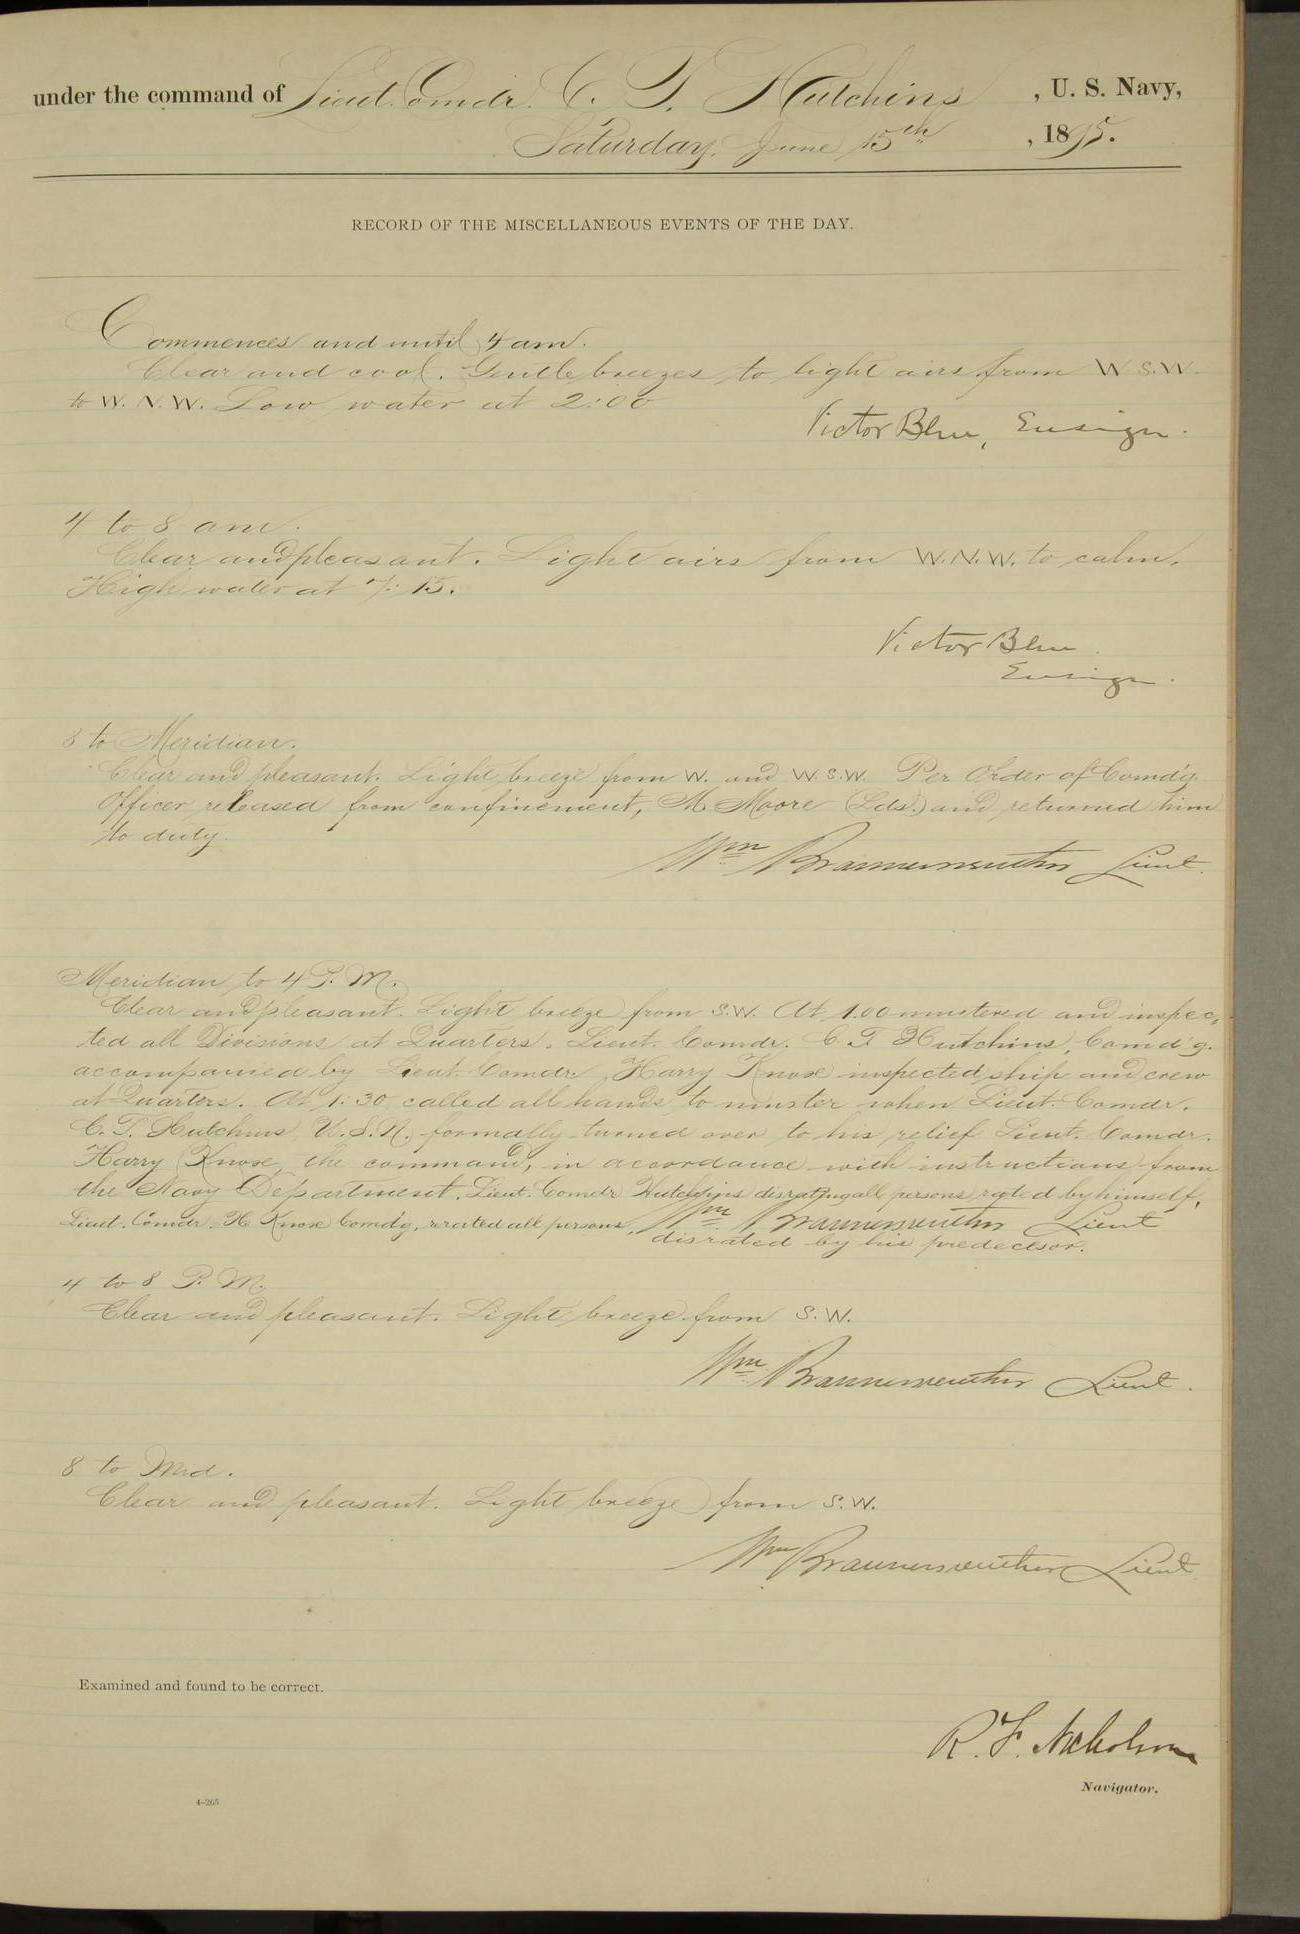 under the command of Lieut. Comdr. C. T. Hutchins, U. S. Navy,
Saturday, June 15th, 1895.
RECORD OF THE MISCELLANEOUS EVENTS OF THE DAY.
Commences and until 4 am.
Clear and cool. Gentle breezes to light airs from W.S.W.
to W.N.W. Low water at 2:00
Victor Blue, Ensign.
4 to 8 am.
Clear and pleasant. Light airs from W.N.W. to calm.
High water at 7:15.
Victor Blue
Ensign.
8 to Meridian.
Clear and pleasant. Light breeze from W. and W.S.W. Per Order of Comd'g.
Officer released from confinement, M Moore (Lds.) and returned him
to duty.
Wm Braunersreuther Lieut.
Meridian to 4 P.M.
Clear and pleasant. Light breeze from S.W. At 1.00 mustered and inspec,
ted all Divisions at Quarters. Lieut. Comdr. C T Hutchins, Comd'g.
accompanied by Lieut. Comdr. Harry Knox inspected ship and crew
at Quarters. At 1:30 called all hands to muster when Lieut. Comdr.
C. T. Hutchins U.S.N. formally turned over to his relief Lieut. Comdr.
Harry Knox, the command, in accordance with instructions from
the Navy Department. Lieut. Comdr Hutchins disrating all persons rated by himself,
Lieut. Comdr. H Knox Comd'g, rerated all persons,
disrated by his predecesor.
Wm Braunersreuther Lieut
4 to 8 P.M.
Clear and pleasant. Light breeze from S.W.
Wm Braunersreuther Lieut.
8 to Mid.
Clear and pleasant. Light breeze from S.W.
Wm Braunersreuther Lieut.
Examined and found to be correct.
R. F. Nicholson
Navigator.
4-265